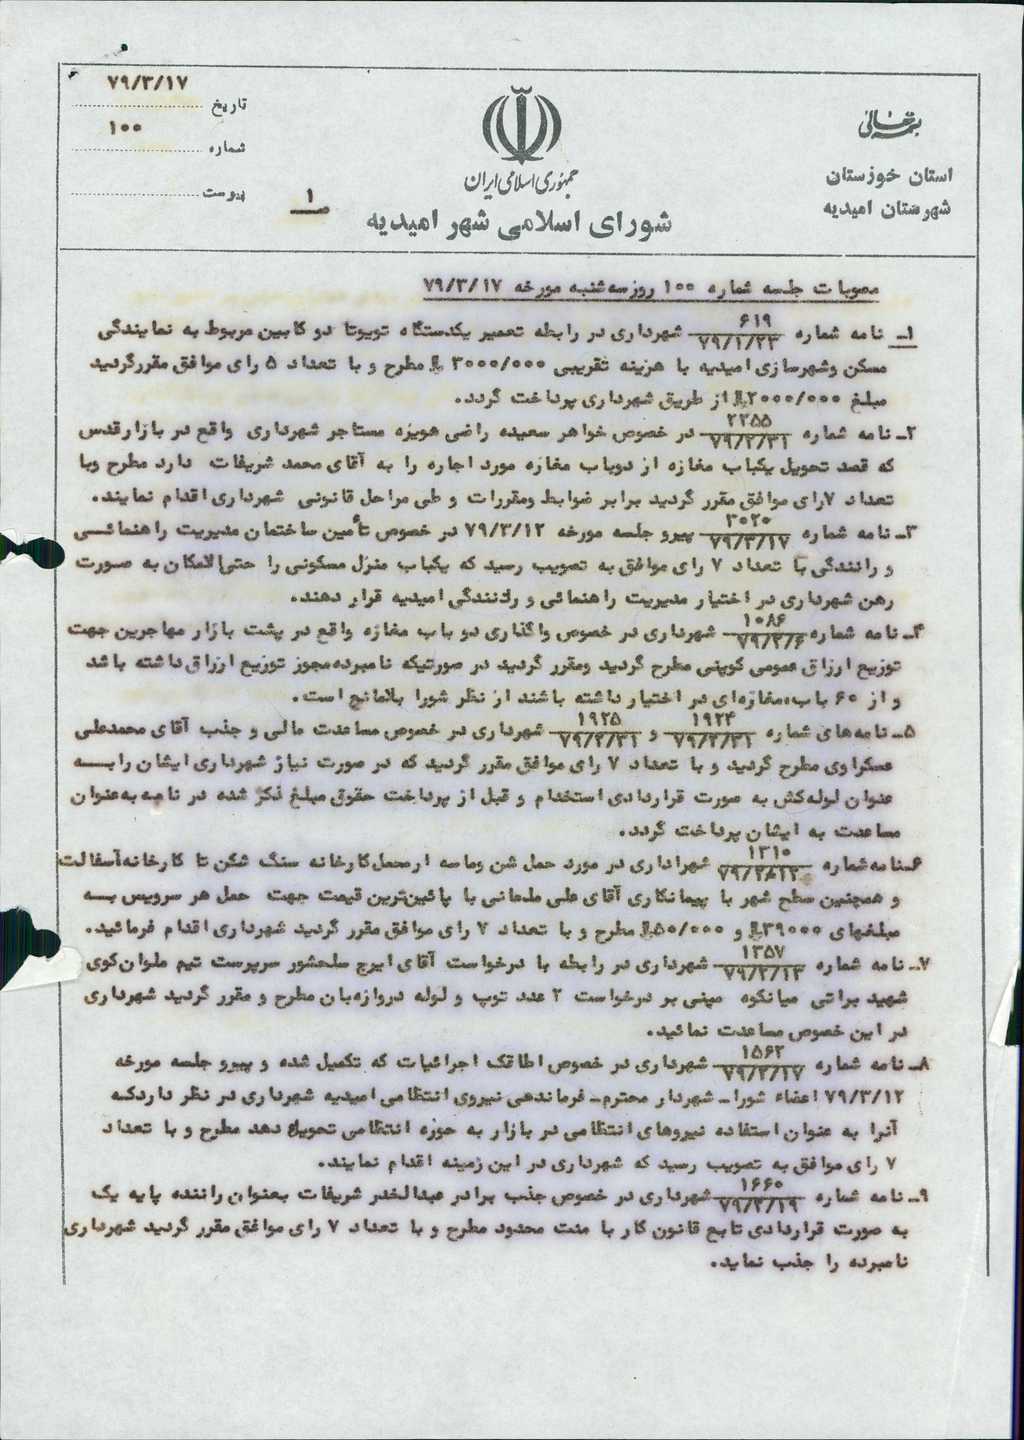 ۷۹/۳/۱۷
تاریخ
۱۰۰
شماره
پیوست
جمهوری اسلامی ایران
شورای اسلامی شهر امیدیه
صـ ۱
بسمه تعالی
استان خوزستان
شهرستان امیدیه
مصوبات جلسه شماره ۱۰۰ روز سه‌شنبه مورخه ۷۹/۳/۱۷
۱ـ نامه شماره ۶۱۹ / ۷۹/۱/۲۳ شهرداری در رابطه تعمیر یکدستگاه تویوتا دو کابین مربوط به نمایندگی
مسکن وشهرسازی امیدیه با هزینه تقریبی ۳۰۰۰/۰۰۰ ریال مطرح و با تعداد ۵ رای موافق مقررگردید
مبلغ ۲۰۰۰/۰۰۰ ریال از طریق شهرداری پرداخت گردد.
۲ـ نامه شماره ۲۲۵۵ / ۷۹/۲/۳۱ در خصوص خواهر سعیده راضی هویزه مستاجر شهرداری واقع در بازارقدس
که قصد تحویل یکباب مغازه از دوباب مغازه مورد اجاره را به آقای محمد شریفات دارد مطرح وبا
تعداد ۷رای موافق مقرر گردید برابر ضوابط ومقررات و طی مراحل قانونی شهرداری اقدام نمایند.
۳ـ نامه شماره ۳۰۲۰ / ۷۹/۳/۱۷ پیرو جلسه مورخه ۷۹/۳/۱۲ در خصوص تأمین ساختمان مدیریت راهنمائی
و رانندگی با تعداد ۷ رای موافق به تصویب رسید که یکباب منزل مسکونی را حتی‌الامکان به صورت
رهن شهرداری در اختیار مدیریت راهنمائی و رانندگی امیدیه قرار دهند.
۴ـ نامه شماره ۱۰۸۶ / ۷۹/۳/۶ شهرداری در خصوص واگذاری دو باب مغازه واقع در پشت بازار مهاجرین جهت
توزیع ارزاق عمومی کوپنی مطرح گردید ومقرر گردید در صورتیکه نامبرده مجوز توزیع ارزاق داشته باشد
و از ۶۰ باب مغازه‌ای در اختیار داشته باشند از نظر شورا بلامانع است.
۵ـ نامه‌های شماره ۱۹۲۴ / ۷۹/۲/۳۱ و ۱۹۲۵ / ۷۹/۲/۳۱ شهرداری در خصوص مساعدت مالی و جذب آقای محمدعلی
عسکراوی مطرح گردید و با تعداد ۷ رای موافق مقرر گردید که در صورت نیاز شهرداری ایشان را به
عنوان لوله‌کش به صورت قراردادی استخدام و قبل از پرداخت حقوق مبلغ ذکر شده در نامه به‌عنوان
مساعدت به ایشان پرداخت گردد.
۶ـ نامه شماره ۱۳۱۰ شهراداری در مورد حمل شن وماسه ازمحل‌کارخانه سنگ شکن تا کارخانه‌آسفالت
و همچنین سطح شهر با پیمانکاری آقای علی با پائین‌ترین قیمت جهت حمل هر سرویس به
مبلغهای ۳۹۰۰۰ ریال و ۵۰/۰۰۰ ریال مطرح و با تعداد ۷ رای موافق مقرر گردید شهرداری اقدام فرمائید.
۷ـ نامه شماره ۱۳۵۷ / ۷۹/۳/۱۳ شهرداری در رابطه با درخواست آقای ایرج سلحشور سرپرست تیم ملوان‌کوی
شهید براتی میانکوه مبنی بر درخواست ۲ عدد توپ و لوله دروازه‌بان مطرح و مقرر گردید شهرداری
در این خصوص مساعدت نمائید.
۸ـ نامه شماره ۱۵۶۲ / ۷۹/۳/۱۷ شهرداری در خصوص اطاقک اجرائیات که تکمیل شده و پیرو جلسه مورخه
۷۹/۳/۱۲ اعضاء شورا ـ شهردار محترم ـ فرماندهی نیروی انتظامی امیدیه شهرداری در نظر داردکه
آنرا به عنوان استفاده نیروهای انتظامی در بازار به حوزه انتظامی تحویل دهد مطرح و با تعداد
۷ رای موافق به تصویب رسید که شهرداری در این زمینه اقدام نمایند.
۹ـ نامه شماره ۱۶۶۰ / ۷۹/۳/۱۹ شهرداری در خصوص جذب برادر عبدالخدر شریفات بعنوان راننده پایه یک
به صورت قراردادی تابع قانون کار با مدت محدود مطرح و با تعداد ۷ رای موافق مقرر گردید شهرداری
نامبرده را جذب نماید.